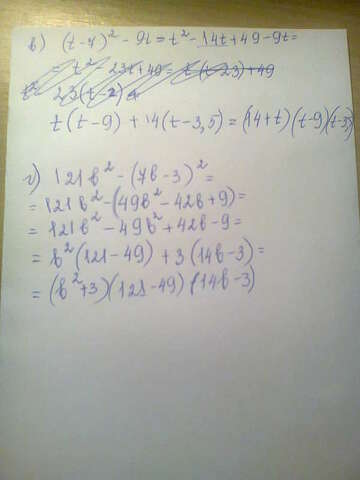 в) (t-7)² - 9t = t² - 14t + 49 - 9t =
= t² - 23t + 49 = t(t-23) + 49
t(t-9) + 14(t-3,5) = (14+t)(t-9)(t-3,5)
г) 121b² - (7b-3)² =
= 121b² - (49b² - 42b + 9) =
= 121b² - 49b² + 42b - 9 =
= b²(121-49) + 3(14b-3) =
= (b²+3)(121-49)(14b-3)